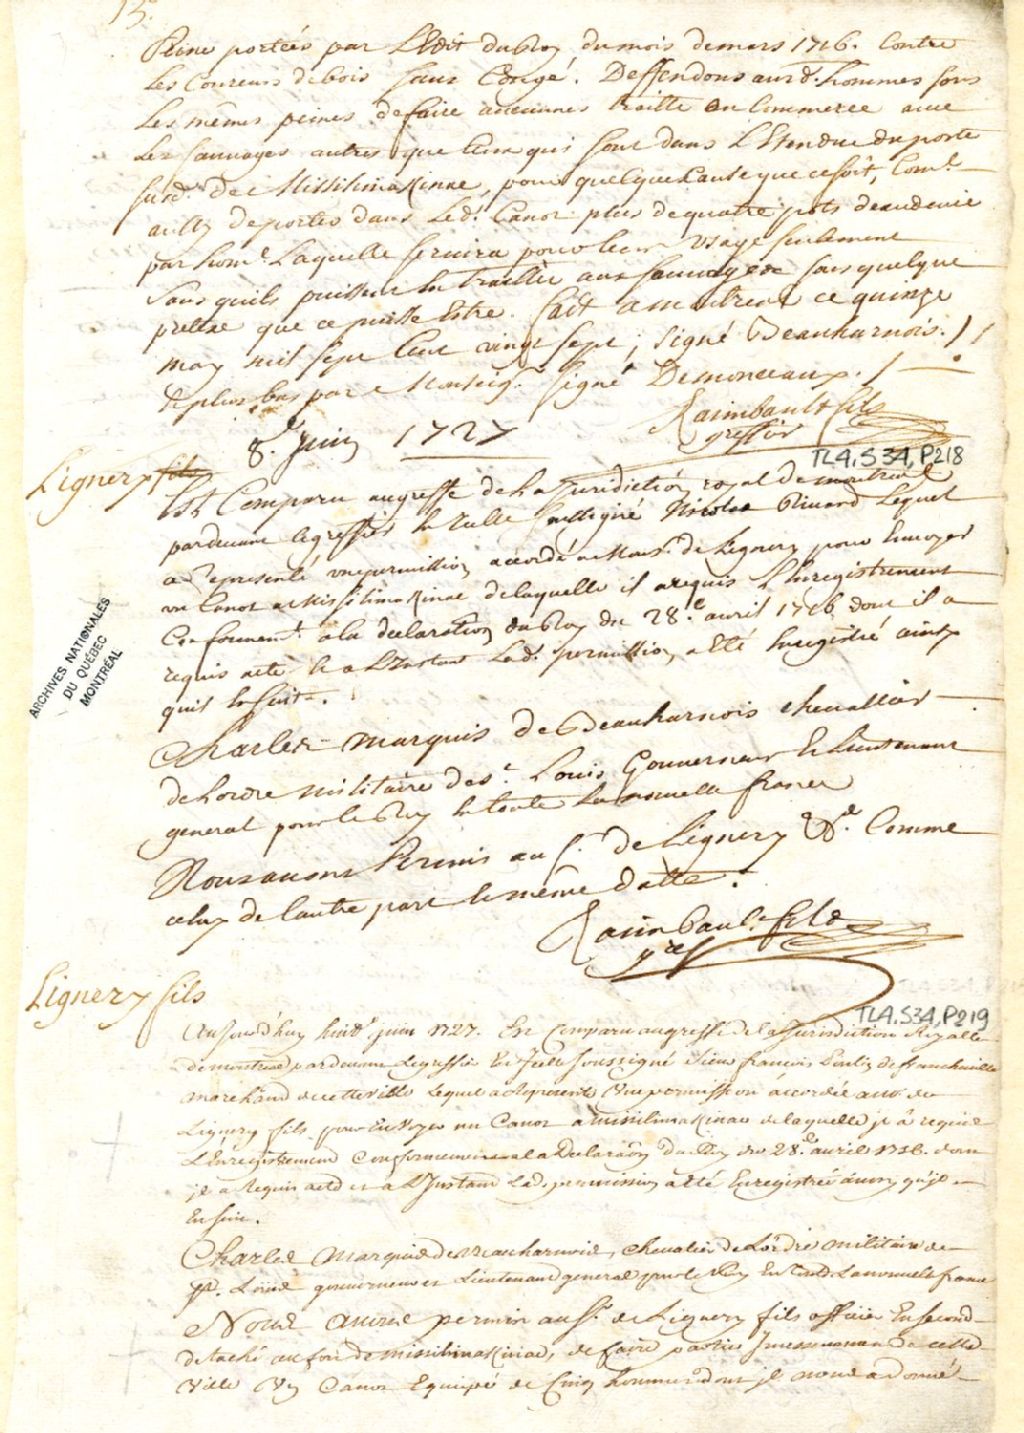 15e
Peine portées par L'Edit du Roy du mois de mars 1716. Contre
Les Coureurs de bois sans Congé. Deffendons ausd. hommes sous
Les mêmes peines de faire aucunes traitte ou Commerce avec
Les Sauvages autres que Ceux qui sont dans L'Etendue du poste
susd. De Missilimakinac, pour quelque Cause que ce soit, Come
aussy de porter dans Led. Canot plus de quatre pots deaudevie
par home Laquelle servira pour leur Usage seulement
sans quils puissent la traitter aux Sauvages sous quelque
pretexe que ce puisse Estre. fait a montreal ce quinze
may mil sept Cent vingt sept; signé Beauharnois. //
& plus bas par Monseigr. signé Demonceaux. /
Raimbault fils
greffier
8e Juin 1727
TL4,S34,P218
Lignery fils
Est Comparu au greffe de la Juridiction royal de montreal
pardevant le greffier Icelle soussigné Nicolas Rivard Lequel
a Representé une permission accordé a Mons. de Lignery pour Envoyer
un Canot a Missilimakinac de laquelle il a requis L'Enregistrement
Conformemt. à la declaration du Roy du 28e avril 1716 dont il a
requis acte & a L'Instant Led. permission a Eté Enregistré ainsy
quil Ensuit.
ARCHIVES NATIONALES
DU QUÉBEC
MONTRÉAL
Charles Marquis de Beauharnois chevallier
de Lordre militaire de St. Louis Gouverneur & Lieutenant
general pour le Roy En toute La nouvelle france
Nous avons Permis au Sr. de Lignery &e. Comme
celuy de l'autre part le même datte.
Raimbault fils
gref
Lignery fils
TL4,S34,P219
Aujourd'huy huite juin 1727. Est Comparu au greffe de la Jurisdiction Royalle
de montreal pardevant Le greffier Dicelle soussigné Sieur françois Poulin de francheville
marchand de cette ville Lequel a Representé Une permission accordée au sr de
Lignery fils pour Envoyer un Canot a missilimakinac de laquelle jl â requis
L'Enregistrement Conformement a la Declaraõn du Roy du 28e. avril 1716. dont
jl a Requis acte & a L'Instant Lad. permission a Eté Enregistrée ainsy qu'jl
Ensuit.
Charles Marquis de Beauharnois, chevalier de L'ordre militaire de
St. Louis gouverneur et Lieutenant general pour le Roy En toute La nouvelle france
Nous Avons permis au Sr. de Lignery fils officier En second
detaché au fort de missilimakinac, de faire partir Incessament de cette
Ville Un Canot Equipé de Cinq hommes dont jl nous a donné